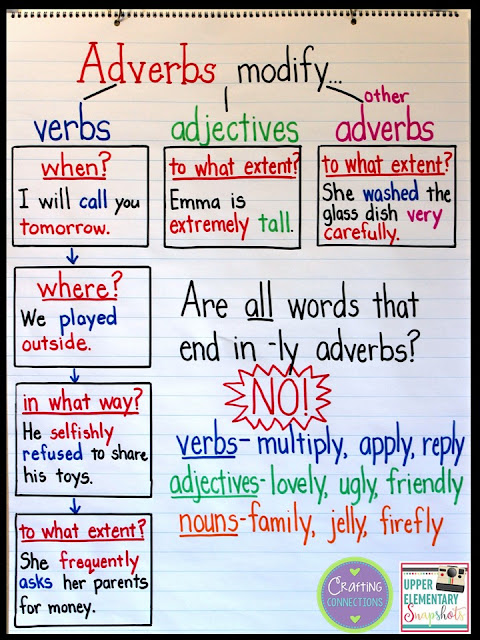 Adverbs modify...
verbs
adjectives
other
adverbs
when?
I will call you
tomorrow.
to what extent?
Emma is
extremely tall.
to what extent?
She washed the
glass dish very
carefully.
where?
We played
outside.
in what way?
He selfishly
refused to share
his toys.
to what extent?
She frequently
asks her parents
for money.
Are all words that
end in -ly adverbs?
NO!
verbs- multiply, apply, reply
adjectives- lovely, ugly, friendly
nouns- family, jelly, firefly
Crafting
CONNECTIONS
UPPER
ELEMENTARY
Snapshots